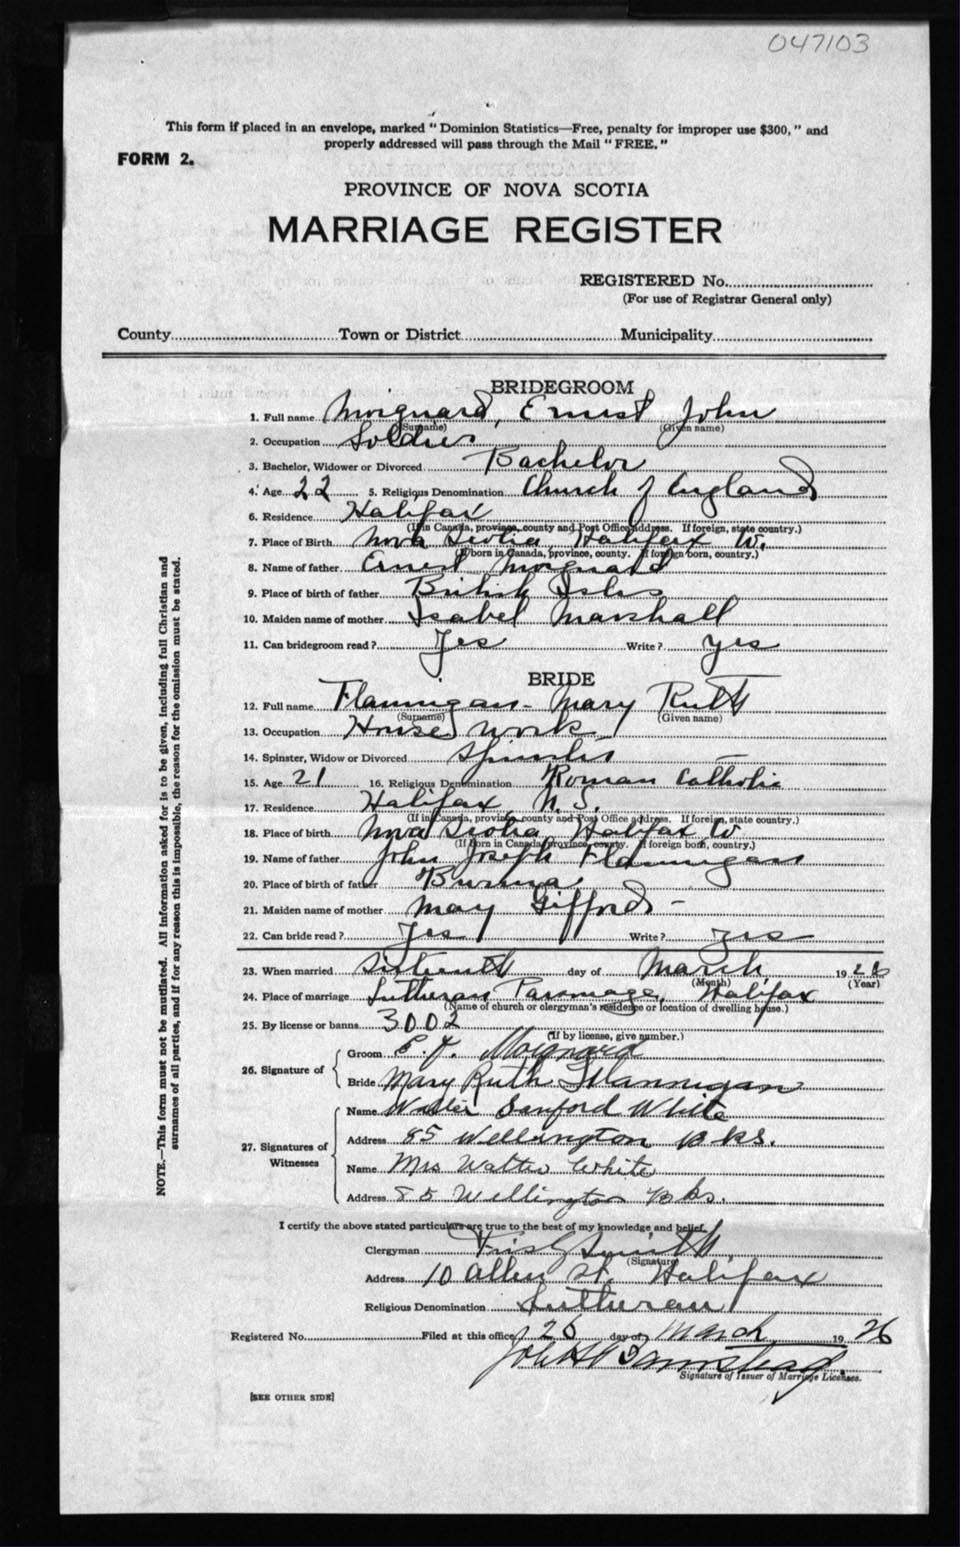 047103
This form if placed in an envelope, marked "Dominion Statistics—Free, penalty for improper use $300," and
properly addressed will pass through the Mail "FREE."
FORM 2.
PROVINCE OF NOVA SCOTIA
MARRIAGE REGISTER
REGISTERED No.
(For use of Registrar General only)
County Town or District Municipality
BRIDEGROOM
1. Full name Moignard, Ernest John
(Surname) (Given name)
2. Occupation Soldier
3. Bachelor, Widower or Divorced Bachelor
4. Age 22 5. Religious Denomination Church of England
6. Residence Halifax
(If in Canada, province, county and Post Office address. If foreign, state country.)
7. Place of Birth Nova Scotia, Halifax
(If born in Canada, province, county. If foreign born, country.)
8. Name of father Ernest Moignard
9. Place of birth of father British Isles
10. Maiden name of mother Isabel Marshall
11. Can bridegroom read? Yes Write? yes
BRIDE
12. Full name Flannigan - Mary Ruth
(Surname) (Given name)
13. Occupation House work
14. Spinster, Widow or Divorced Spinster
15. Age 21 16. Religious Denomination Roman Catholic
17. Residence Halifax N.S.
(If in Canada, province, county and Post Office address. If foreign, state country.)
18. Place of birth Nova Scotia, Halifax
(If born in Canada, province, county. If foreign born, country.)
19. Name of father John Joseph Flannigan
20. Place of birth of father Burma
21. Maiden name of mother May Gifford -
22. Can bride read? Yes Write? yes
23. When married Sixteenth day of March, 1926
(Month) (Year)
24. Place of marriage Lutheran Parsonage, Halifax
(Name of church or clergyman's residence or location of dwelling house.)
25. By license or banns 3002
(If by license, give number.)
26. Signature of
Groom E. J. Moignard
Bride Mary Ruth Flannigan
27. Signatures of Witnesses
Name Walter Sanford White
Address 85 Wellington Bks.
Name Mrs Walter White
Address 85 Wellington Bks.
I certify the above stated particulars are true to the best of my knowledge and belief,
Clergyman
(Signature)
Address 10 Allen St. Halifax
Religious Denomination Lutheran
Registered No. Filed at this office 26 day of March 1926
Signature of Issuer of Marriage Licenses.
[SEE OTHER SIDE]
NOTE.—This form must not be mutilated. All information asked for is to be given, including full Christian and
surnames of all parties, and if for any reason this is impossible, the reason for the omission must be stated.